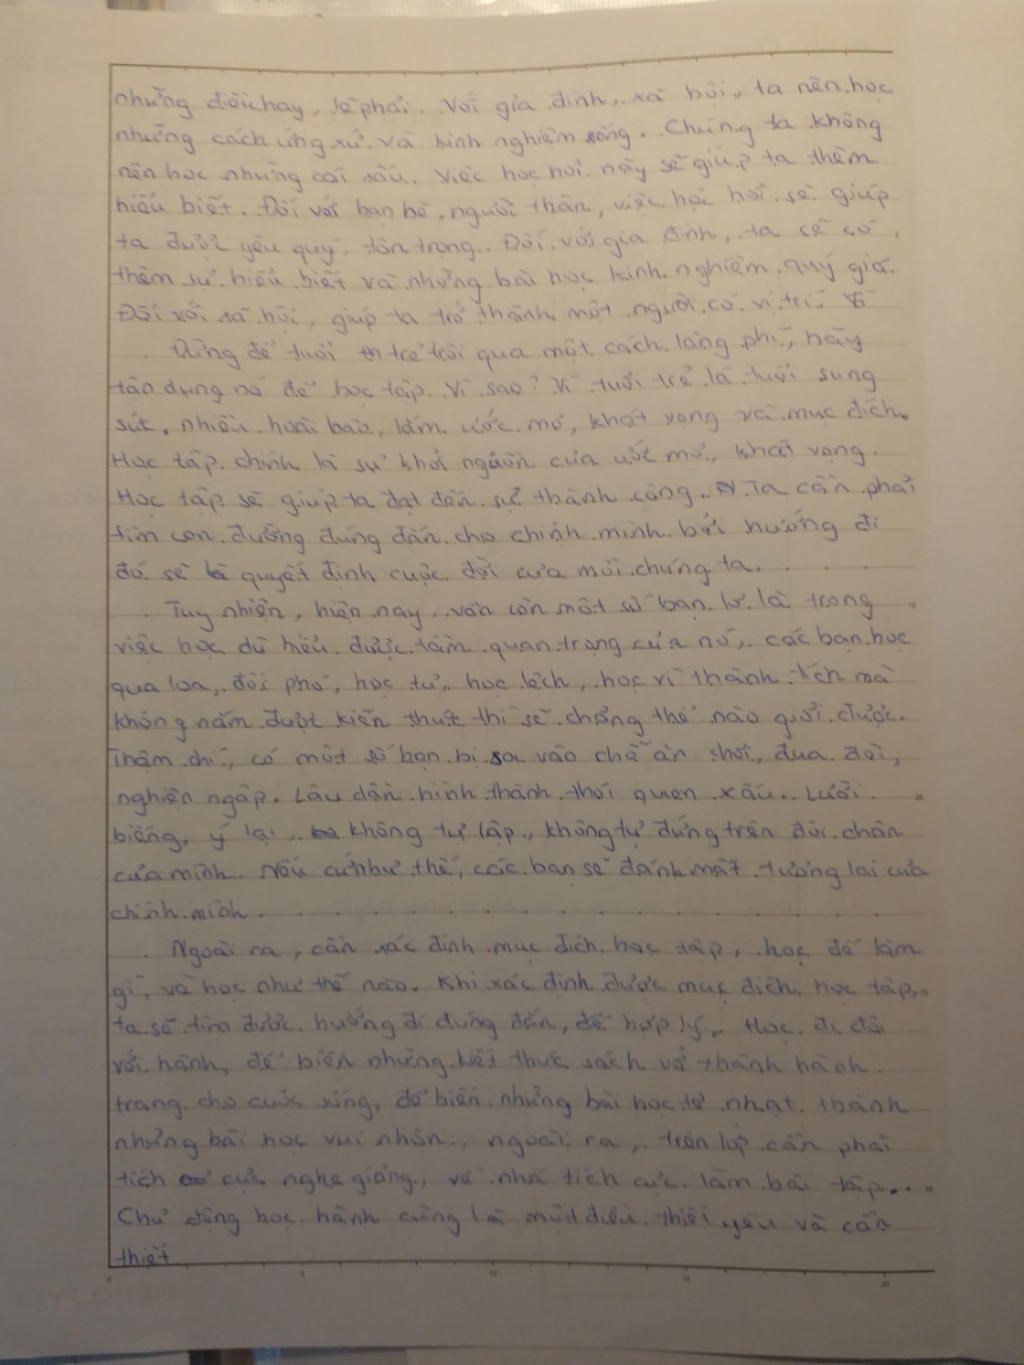 những điều hay, lẽ phải. Với gia đình, xã hội, ta nên học
những cách ứng xử và kinh nghiệm sống. Chúng ta không
nên học những cái xấu. Việc học hỏi này sẽ giúp ta thêm
hiểu biết. Đối với bạn bè, người thân, việc học hỏi sẽ giúp
ta được yêu quý, tôn trọng. Đối với gia đình, ta sẽ có
thêm sự hiểu biết và những bài học kinh nghiệm quý giá.
Đối với xã hội, giúp ta trở thành một người có vị trí.
Đừng để tuổi trẻ trôi qua một cách lãng phí, hãy
tận dụng nó để học tập. Vì sao? Vì tuổi trẻ là tuổi sung
sức, nhiều hoài bão, lắm ước mơ, khát vọng và mục đích.
Học tập chính là sự khơi nguồn của ước mơ, khát vọng.
Học tập sẽ giúp ta đạt đến sự thành công. Ta cần phải
tìm con đường đúng đắn cho chính mình bởi hướng đi
đó sẽ quyết định cuộc đời của mỗi chúng ta.
Tuy nhiên, hiện nay vẫn còn một số bạn lơ là trong
việc học dù hiểu được tầm quan trọng của nó, các bạn học
qua loa, đối phó, học tủ, học lệch, học vì thành tích mà
không nắm được kiến thức thì sẽ chẳng thể nào giỏi được.
Thậm chí, có một số bạn bị sa vào chỗ ăn chơi, đua đòi,
nghiện ngập. Lâu dần hình thành thói quen xấu. Lười
biếng, ỷ lại, không tự lập, không tự đứng trên đôi chân
của mình. Nếu cứ như thế, các bạn sẽ đánh mất tương lai của
chính mình.
Ngoài ra, cần xác định mục đích học tập, học để làm
gì, và học như thế nào. Khi xác định được mục đích học tập,
ta sẽ tìm được hướng đi đúng đắn, để hợp lý. Học đi đôi
với hành, để biến những kiến thức sách vở thành hành
trang cho cuộc sống, để biến những bài học tẻ nhạt thành
những bài học vui nhộn, ngoài ra, trên lớp cần phải
tích cực nghe giảng, về nhà tích cực làm bài tập...
Chủ động học hành cũng là một điều thiết yếu và cần
thiết.